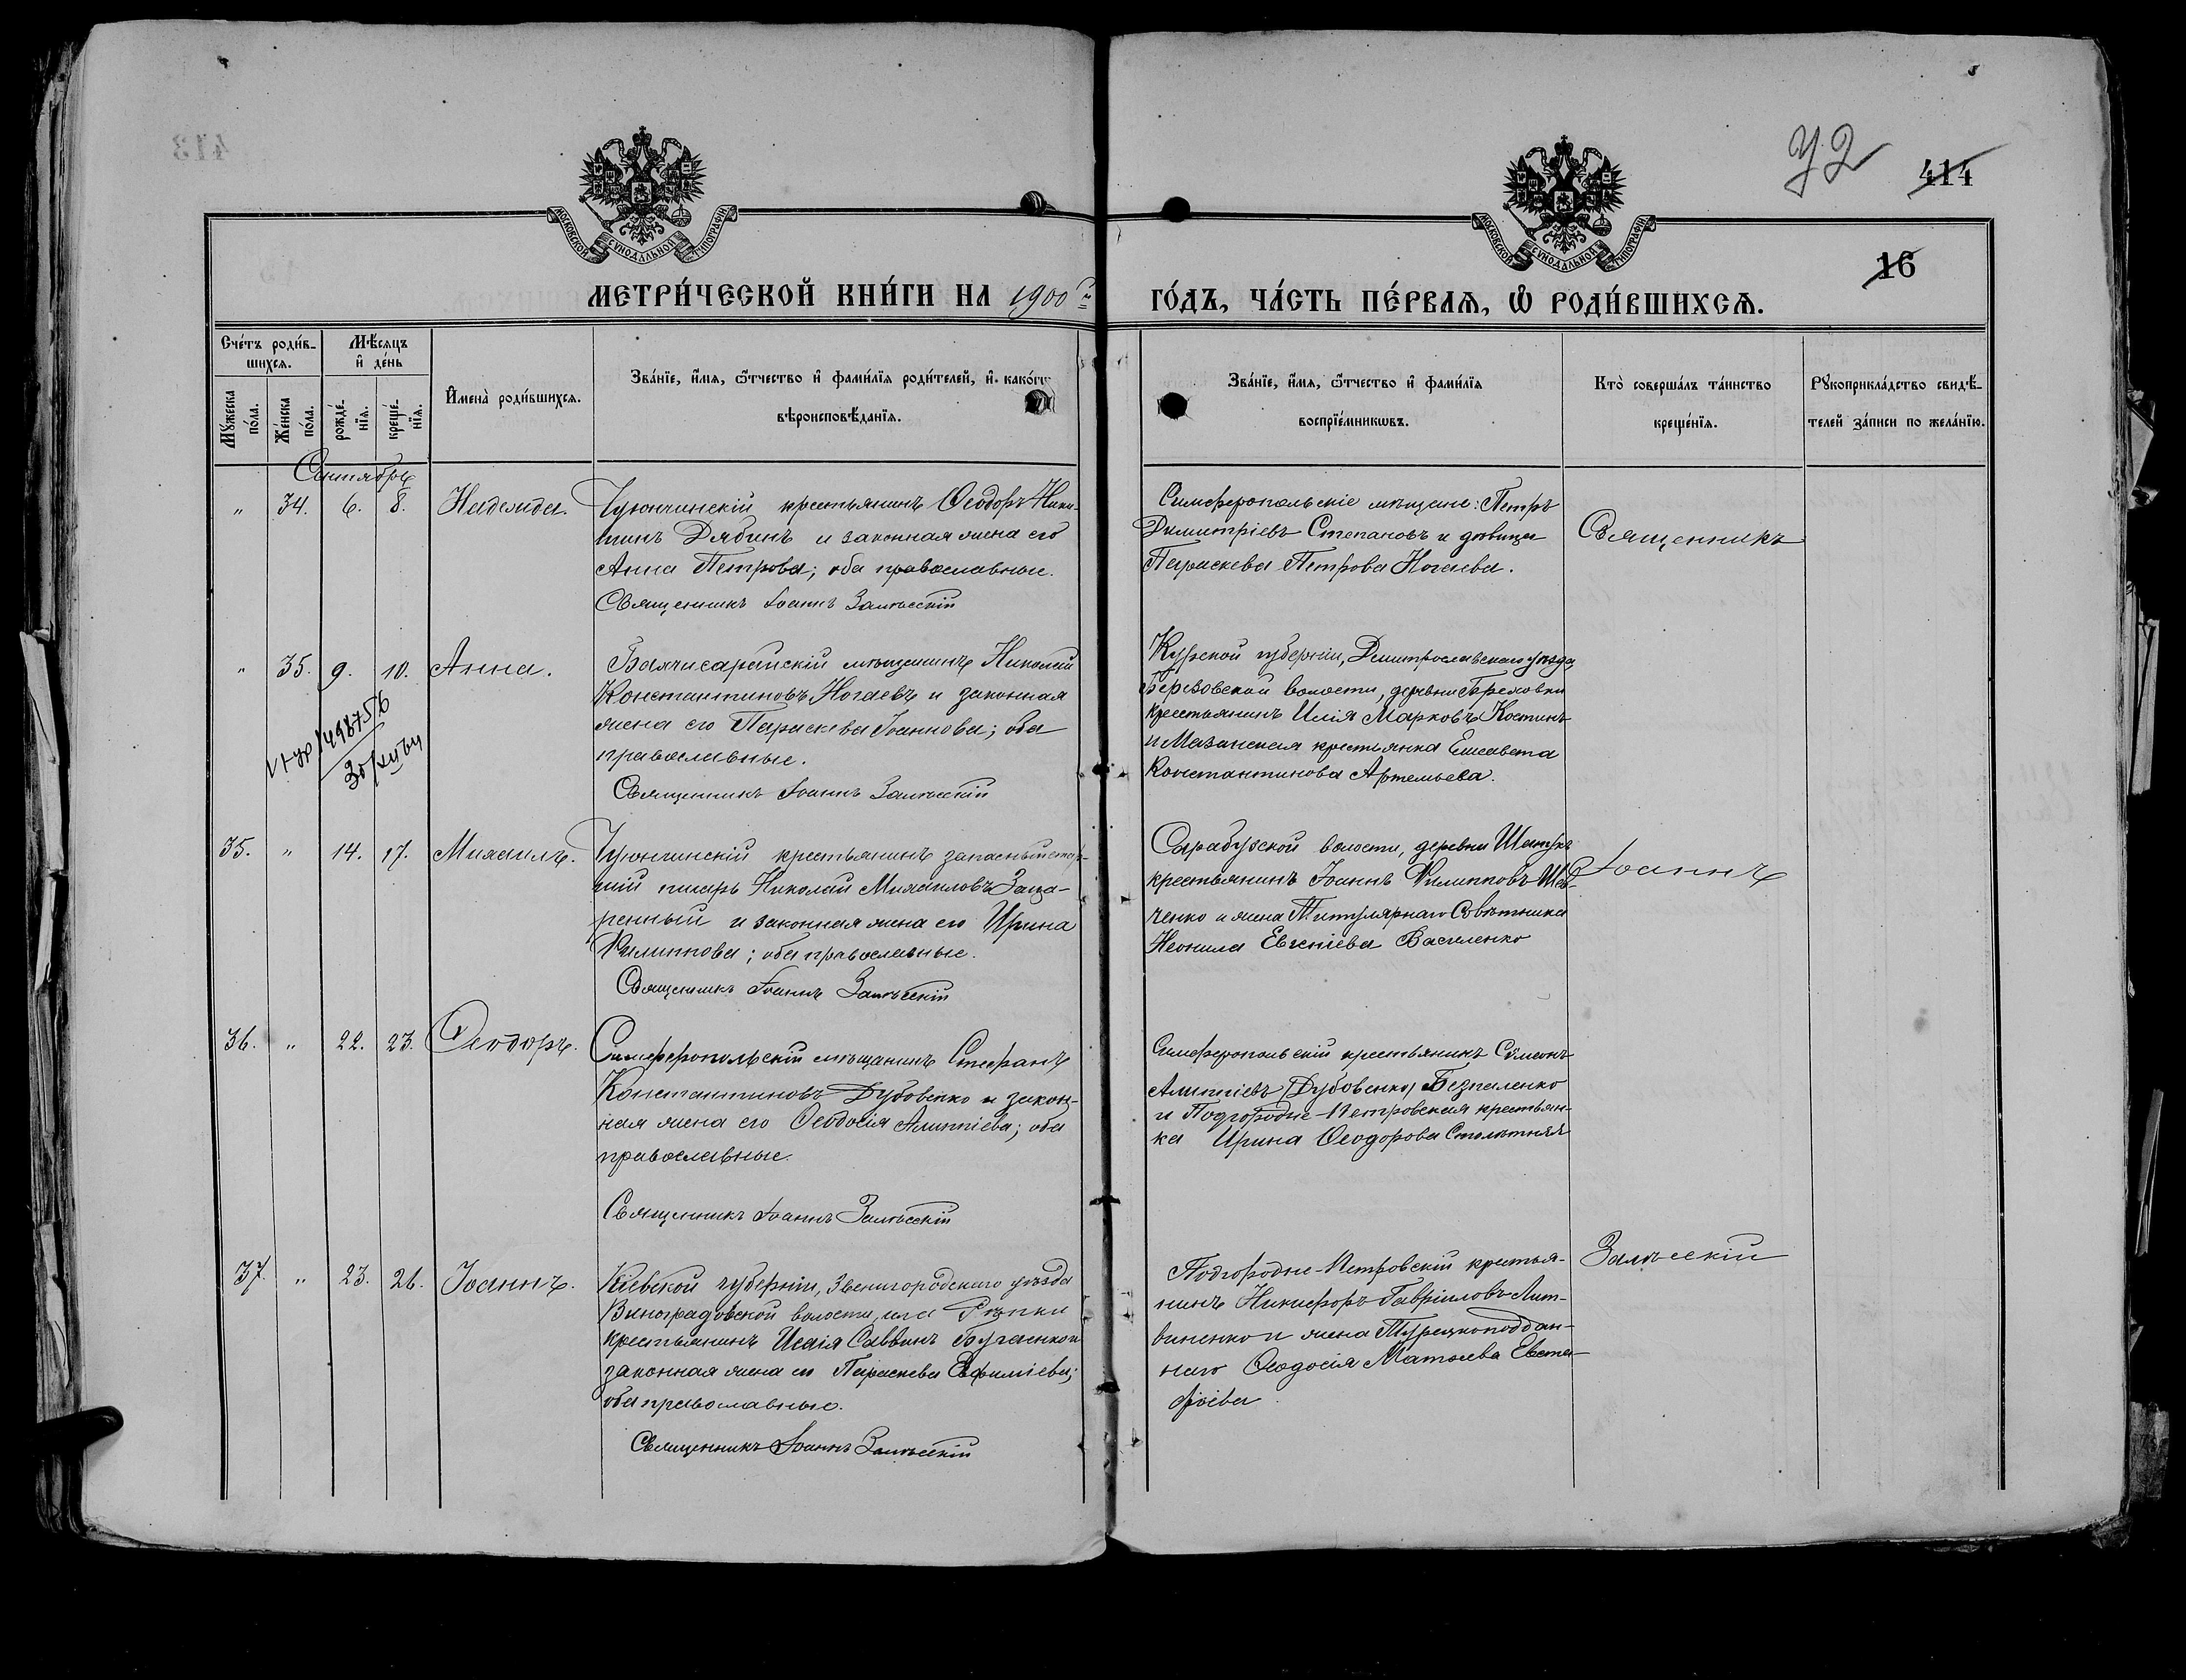 413
У2
414
16
МОСКОВСКОЙ СѴНОДАЛЬНОЙ ТИПОГРАФІИ
МОСКОВСКОЙ СѴНОДАЛЬНОЙ ТИПОГРАФІИ
МЕТРИ́ЧЕСКОЙ КНИ́ГИ НА 1900 й
ГО́ДЪ, ЧА́СТЬ ПЕ́РВАѦ, Ѽ РОДИ́ВШИХСѦ.
Сче́тъ роди́в-
шихсѧ.
Мѣ́сѧцъ
и҆ де́нь
Мꙋ́жеска по́ла.
Же́нска по́ла.
рожде́-
нїѧ.
креще́-
нїѧ.
И҆мена̀ роди́вшихсѧ.
Зва́нїе, и҆́мѧ, ѻ҆́тчество и҆ фами́лїѧ роди́телей, и҆ како́гѡ
вѣроисповѣ́данїѧ.
Зва́нїе, и҆́мѧ, ѻ҆́тчество и҆ фами́лїѧ
воспрїе́мникѡвъ.
Кто̀ соверша́лъ та́инство
креще́нїѧ.
Рꙋкоприкла́дство свидѣ́-
телей за́писи по жела́нїю.
Сентябрь
" 34. 6. 8. Надежда.
крестьянинъ Ѳеодоръ Ники-
тинъ Дябинъ и законная жена его
Анна Петрова; оба православные.
Священникъ Іоаннъ Залѣсскій
Симферопольскіе мѣщане: Петръ
Димитріевъ Степановъ и дѣвица
Параскева Петрова Ногаева.
Священникъ
" 35. 9. 10. Анна.
Бахчисарайскій мѣщанинъ Николай
Константиновъ Ногаевъ и законная
жена его Параскева Іоаннова; оба
православные.
Священникъ Іоаннъ Залѣсскій
Курской губерніи, Дмитрославскаго уѣзда
Березовской волости, деревни
крестьянинъ Илія Марковъ Костинъ
и Мазанская крестьянка Елисавета
Константинова Артемьева.
35. " 14. 17. Михаилъ.
крестьянинъ запасный стар-
шій писарь Николай Михаиловъ
и законная жена его Ирина
Филиппова; оба православные.
Священникъ Іоаннъ Залѣсскій
Сарабузской волости, деревни
крестьянинъ Іоаннъ Филипповъ Шев-
ченко и жена Титулярнаго Совѣтника
Неонила Евгеніева Василенко
Іоаннъ
36. " 22. 23. Ѳеодоръ.
Симферопольскій мѣщанинъ Стефанъ
Константиновъ Дубовенко и закон-
ная жена его Ѳеодосія Алипіева; оба
православные.
Священникъ Іоаннъ Залѣсскій
Симферопольскій крестьянинъ Сѵмеонъ
Алипіевъ (Дубовенко) Безпаленко
и Подгородне-Петровская крестьян-
ка Ирина Ѳеодорова Столѣтняя
37. " 23. 26. Іоаннъ.
Кіевской губерніи, Звенигородскаго уѣзда
Виноградовской волости, села Рѣпки
крестьянинъ Исаія Саввинъ и
законная жена его Параскева Евфиміева;
оба православные.
Священникъ Іоаннъ Залѣсскій
Подгородне-Петровскій крестья-
нинъ Никифоръ Гавріиловъ Лит-
виненко и жена Турецкоподдан-
наго Ѳеодосія Матѳеева Евста-
фіева
Залѣсскій